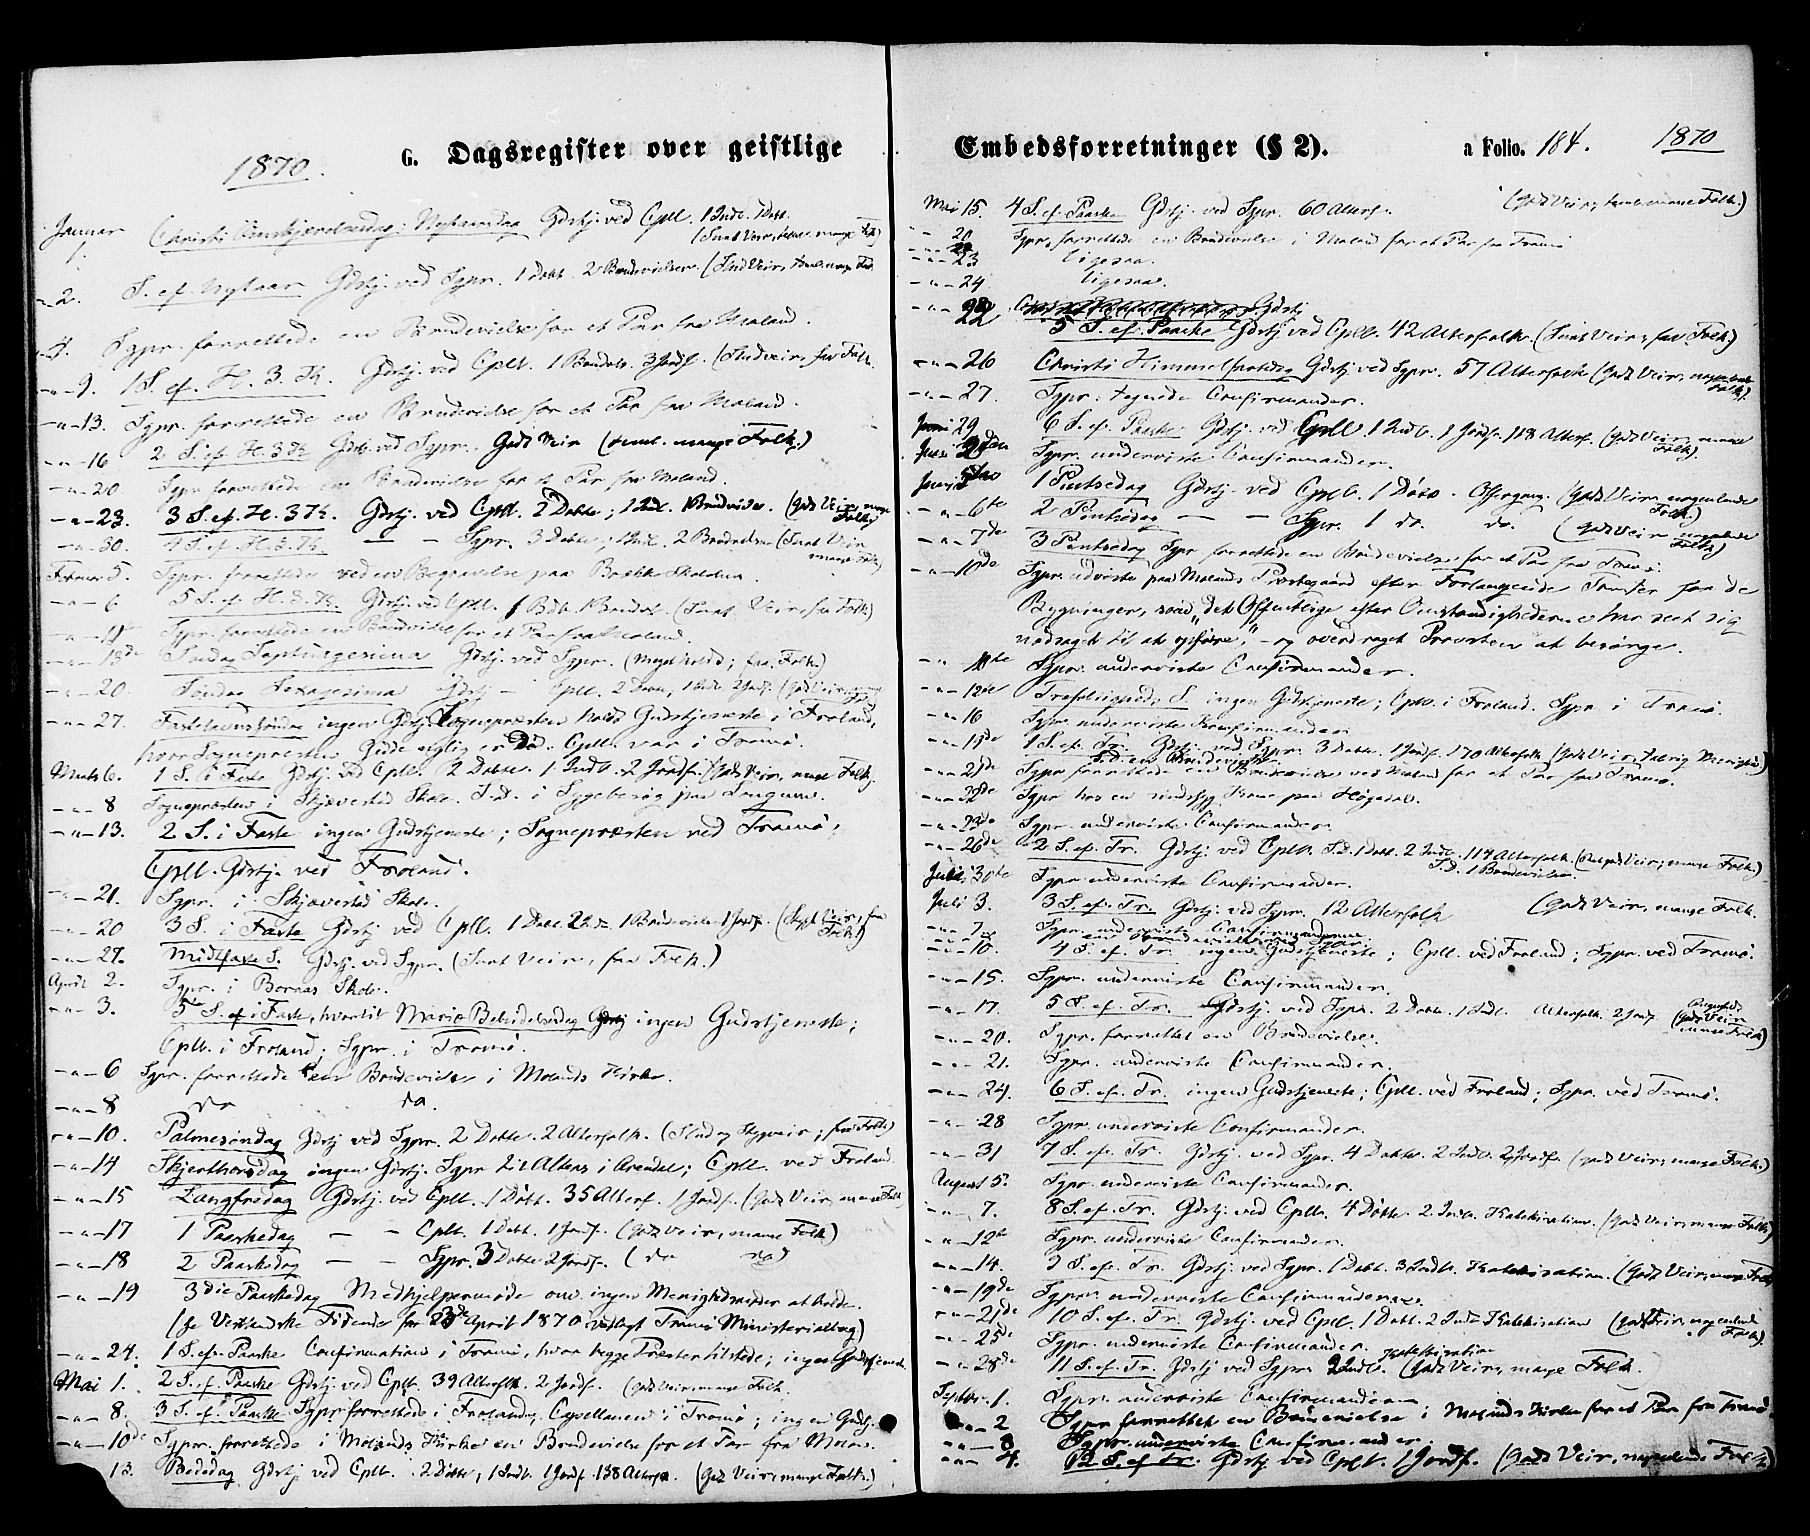 G. Dagsregister over geistlige
1870.
Januar 1. Christi Omskjærelsesdag: Nytaarsdag Gdstj. ved Cpll. 1 Indl. 1 Døbt.
(Smuk Veir, mange Folk)
-"- 2. S. ef. Nytaar Gdstj. ved Sgpr. 1 Døbt. 2 Brudevielser. (Sludveir,
Sgpr. forrettede en Brudevielse for et Par fra Moland.
-"- 9. 1 S. ef. H. 3. K. Gdstj. ved Cpll. 1 Brudev. 3 Jordf. (Sludveir, faa Folk.
-"- 13. Sgpr. forrettede en Brudevielse for et Par fra Moland.
-"- 16 2 S. ef. H. 3 K. Gdstj. ved Sgpr. Godt Veir (mange Folk.)
-"- 20 Sgpr. forrettede en Brudevielse for et Par fra Moland.
-"- 23. 3 S. ef. H. 3 K. Gdstj. ved Cpll. 2 Døbte; 1 Ind. Brudevielse. (Godt Veir, mange Folk)
-"- 30. 4 S. ef. H. 3. K. — — Sgpr. 3 Døbte; 1 Indl. 2 Brudevielser (Smuk Veir
mange Folk)
Februar 5. Sgpr. forrettede ved en Begravelse paa Brække Skolehus.
-"- 6 5 S. ef. H. 3. K. Gdstj. ved Cpll. 1 Døb. 1 Brudev. (Smuk Veir, faa Folk)
Sgpr. forrettede en Brudevielse for et Par fra Moland.
-"- 13de Søndag Septuagesima Gdstj. ved Sgpr. (Meget koldt; faa Folk)
-"- 20. Søndag Sexagesima Gdstj — Cpll. 2 Døbte, 1 Indl. 2 Jordf. (Godt Veir, mange
-"- 27. Fastelavnssøndag ingen Gdstj. Sognepræsten holdt Gudstjeneste i Froland,
hvor Sognepræsten Gidde nylig er Død. Cpll. var i Tromø.
Marts 6. 1 S. i Faste Gdstj. ved Cpll. 2 Døbte. 1 Indl. 2 Jordf. (Godt Veir, mange Folk.
-"- 8 Sognepræsten i Skjævestad Skole. S.D. i Sygebesøg paa Langum.
-"- 13. 2 S. i Faste ingen Gudstjeneste; Sognepræsten ved Tromø;
Cpll. Gdstj. ved Froland.
-"- 21. Sgpr. i Skjævestad Skole.
-"- 20 3 S. i Faste Gdstj ved Cpll. 1 Døbt. 1 Brudevielse 1 Jordf. (Veir, faa
Folk)
-"- 27. Midtfaste S. Gdstj. ved Sgpr. (Smuk Veir, faa Folk.)
April 2. Sgpr. i Bornæs Skole.
-"- 3. 5te S. i Faste, hvortil Mariæ Bebudelsesdag ingen Gudstjeneste;
Cpll. i Froland; Sgpr. i Tromø.
-"- 6 Sgpr. forrettede en Brudevielse i Molands Kirke.
-"- 8 do do.
-"- 10. Palmesøndag Gdstj ved Sgpr. 2 Døbte. 2 Alterfolk. (Slud og Regnveir; faa Folk)
-"- 14 Skjærthorsdag ingen Gdstj. Sgpr til Alters i Arendal; Cpll. ved Froland.
-"- 15 Langfredag Gdstj ved Cpll. 1 Døbt. 35 Alterf. 1 Jordf. (Godt Veir, mange Folk
-"- 17 1 Paaskedag — — Cpll. 1 Døbt. 1 Jordf. (Godt Veir, mange Folk)
-"- 18 2 Paaskedag — — Sgpr. 3 Døbte 2 Jordf. (do do)
-"- 19 3die Paaskedag Medhjelpermøde
(se Vestlandske Tidende for 23de April 1870 vedlagt Tromø Ministerialbog)
-"- 24. 1 S. ef. Paaske Confirmation i Tromø, hvor begge Præster tilstede; ingen Gudstjeneste.
Mai 1. 2 S. ef. Paaske Gdstj ved Cpll. 39 Alterfolk. 2 Jordf. (Godt Veir, mange Folk.
-"- 8. 3 S. ef. Paaske Sgpr forrettede i Froland, Capellanen i Tromø; ingen Gudstj.
-"- 10de Sgpr. forrettede i Molands Kirke en Brudevielse for et Par fra Moland.
13. Bededag Gdstj ved Cpll. 2 Døbte; 1 Indl. 1 Jordf. 138 Alterf. (Godt Veir, mange Folk.)
Embedsforretninger (§ 2).
a Folio. 184. 1870
Mai 15. 4 S. ef. Paaske Gdstj. ved Sgpr. 60 Alterf. (Godt Veir, mange Folk.)
-"- 20 Sgpr. forrettede en Brudevielse i Moland for et Par fra Tromø
-"- 23 ligesaa.
-"- 24 ligesaa.
22 5 S. ef. Paaske Gdstj ved Cpll. 42 Alterfolk. (Smuk Veir, faa Folk.)
-"- 26 Christi Himmelfartsdag Gdstj ved Sgpr. 57 Alterfolk (Godt Veir, nogenlunde
Folk).
-"- 27. Sgpr. tegnede Confirmander.
29 6 S. ef. Paaske Gdstj. ved Cpll. 1 Indl. 1 Jordf. 118 Alterf. (Godt Veir, mange
Folk).
Juni Sgpr. underviste Confirmander.
Juni 5te 1 Pintsedag Gdstj ved Cpll. 1 Døbt. Ofergang. (Godt Veir, nogenlunde
Folk)
-"- 6te 2 Pintsedag — — Sgpr. 1 do. do. (Godt Veir nogenlunde
Folk)
-"- 7de 3 Pintsedag Sgpr forrettede en Brudevielse for et Par fra Tromø.
-"- 10de Sgpr. udviste paa Molands Præstegaard efter Forlangende Tomter for de
Bygninger, som „det Offentlige efter Omstændighederne har seet sig
nødsaget til at opføre," — og overdraget Provsten at besørge.
-"- 11te Sgpr. underviste Confirmander.
-"- 12te Trefoldigheds S. ingen Gudstjeneste; Cpll. i Froland. Sgpr. i Tromø.
-"- 16 Sgpr. underviste Confirmander
-"- 19de 1 S. ef. Tr. Gdstj. ved Sgpr. 3 Døbte. 1 Jordf. 170 Alterfolk (Godt Veir, talrig Menighed)
S.D. en Brudevielse.
-"- 21de Sgpr forrettede en Brudevielse ved Moland for et Par fra Tromø.
-"- 22de Sgpr hos en sindssyg Kone paa Høgedal.
-"- 23de Sgpr. underviste Confirmander.
-"- 26de 2 S. ef. Tr. Gdstj ved Cpll. S.D. 1 Døbt. 2 Indl. 114 Alterfolk. (Veir, mange Folk.)
S.D. 1 Brudevielse
30te Sgpr. underviste Confirmander.
Juli 3. 3 S. ef. Tr. Gdstj. ved Sgpr. 12 Alterfolk (Godt Veir, mange Folk.
Sgpr. underviste Confirmander
-"- 10. 4 S. ef. Tr. ingen Gudstjeneste; Cpll. ved Froland; Sgpr. ved Tromø.
-"- 15. Sgpr. underviste Confirmander.
-"- 17 5 S. ef. Tr. Gdstj. ved Sgpr. 2 Døbte. 1 Indl. Alterfolk. 2 Jordf. (Godt Veir
mange Folk)
-"- 20. Sgpr. forrettet en Brudevielse.
-"- 21. Sgpr. underviste Confirmander.
-"- 24. 6 S. ef. Tr. ingen Gudstjeneste; Cpll. ved Froland; Sgpr. ved Tromø.
-"- 28 Sgpr. underviste Confirmander.
-"- 31 7 S. ef. Tr. Gdstj. ved Sgpr. 4 Døbte. 2 Indl. 2 Jordf. (Godt Veir, mange Folk.)
August 5. Sgpr. underviste Confirmander.
-"- 7. 8 S. ef. Tr. Gdstj. ved Cpll. 4 Døbte. 2 Indl. Katekisation. (Godt Veir, mange Folk)
-"- 12te Sgpr. underviste Confirmander.
-"- 14. 9 S. ef. Tr. Gdstj. ved Sgpr. 1 Døbt. 3 Indl. Katekisation. (Godt Veir, mange Folk
-"- 19de Sgpr. underviste Confirmanderne.
-"- 21de 10 S. ef. Tr. Gdstj. ved Cpll. 1 Døbt. 2 Indl. Katekisation (Godt Veir, nogenlunde
Folk).
-"- 25de Sgpr. underviste Confirmander.
-"- 28de 11 S. ef. Tr. Gdstj ved Sgpr 2 Indl. Katekisation (Godt Veir, mange Folk.
Septbr. 1. Sgpr. underviste Confirmanderne
-"- 2 Sgpr forrettet en Brudevielse i Molands Kirke for et Par fra Tromø.
-"- 8 Sgpr. underviste Confirmander.
-"- 4. 12 S. ef Tr. Gdstj. ved Cpll. 1 Jordf. (Godt Veir, nogenlunde Folk)